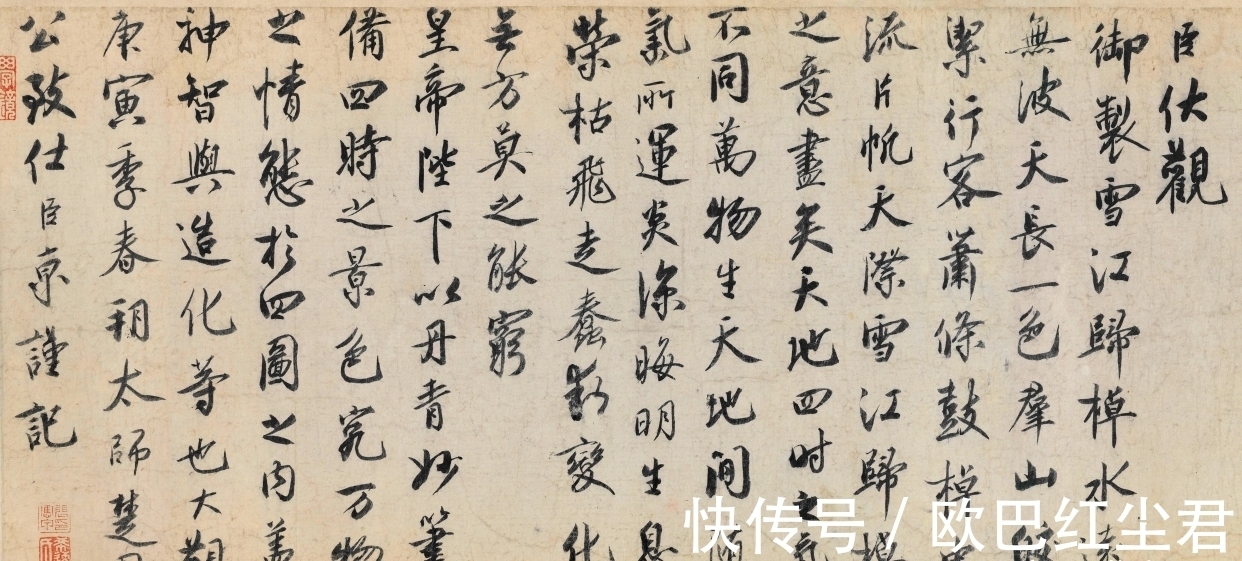 臣伏觀
御製雪江歸棹水
無波天長一色羣山
潔行客蕭條鼓棹
流片帆天際雪江歸棹
之意盡矣天地四时之氣
不同萬物生天地間
氣所運炎涼晦明生息
榮枯飛走蠢動變化
無方莫之能窮
皇帝陛下以丹青妙筆
備四時之景色究万物
之情態於四圖之内蓋
神智與造化等也大觀
庚寅季春朔太師楚
公致仕臣京謹記
快传号 / 欧巴红尘君